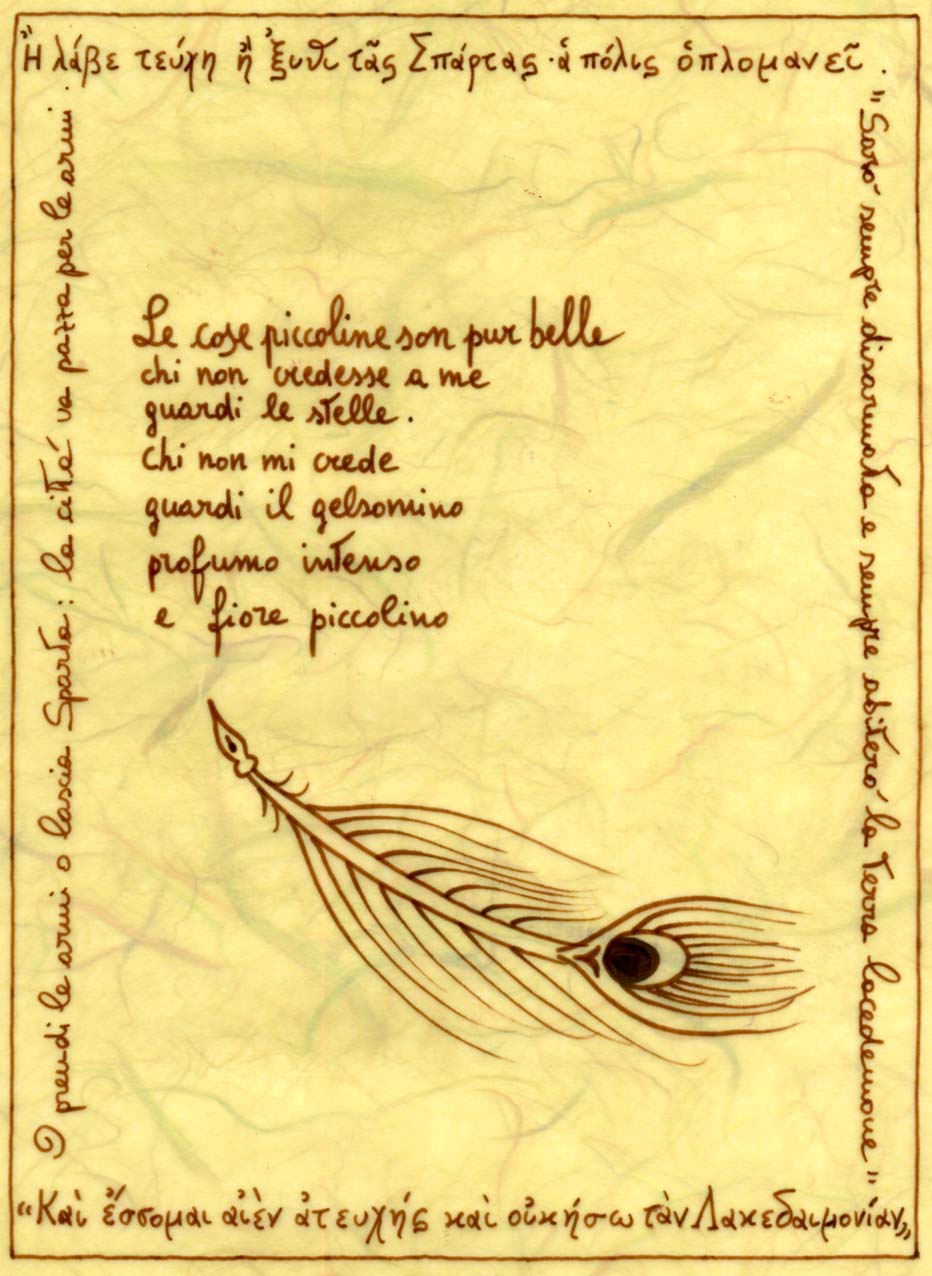 “Ἢ λάβε τεύχη ἢ ἔξυθι τᾶς Σπάρτας · ἁ πόλις ὁπλομανεῖ .
O prendi le armi o lascia Sparta : la cittá va pazza per le armi .
Le cose piccoline son pur belle
chi non credesse a me
guardi le stelle .
Chi non mi crede
guardi il gelsomino
profumo intenso
e fiore piccolino
"Saró sempre disarmata e sempre abiteró la Terra lacedemone"
“Καὶ ἔσσομαι αἰὲν ἀτευχής καὶ οἰκήσω τὰν Λακεδαιμονίαν„